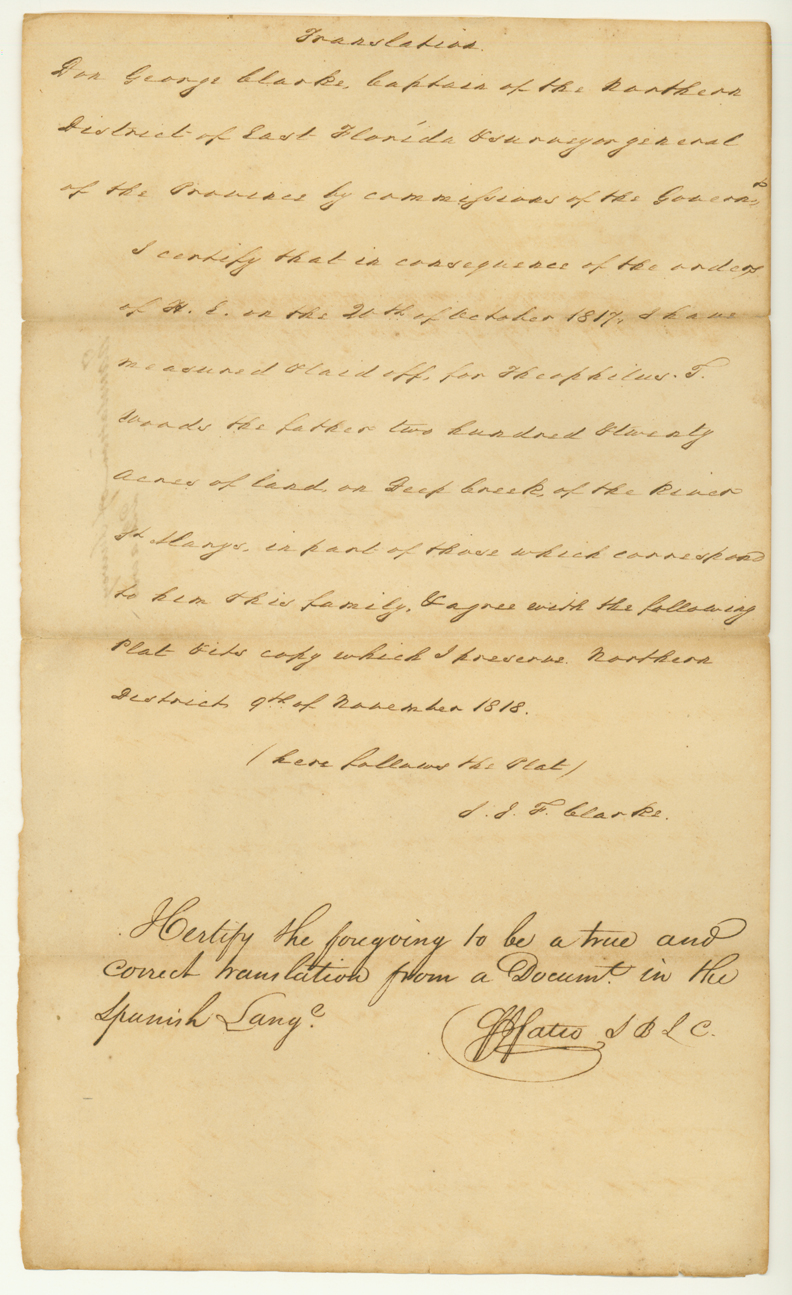 Translation.
Don George Clarke, Captain of the Northern
District of East Florida & surveyor general
of the Province by commissions of the Governmt,
I certify that in consequence of the orders
of H. E. on the 20th of October 1817, I have
measured & laid off, for Theophilus. T.
Woods the father two hundred & twenty
Acres of land, on Deep Creek, of the River
St Marys, in part of those which correspond
to him & his family, & agree with the following
Plat & its copy which I preserve. Northern
District 9th of November 1818.
(here follows the Plat)
G. J. F. Clarke.
I Certify the foregoing to be a true and
correct translation from a Documt. in the
Spanish Lange.
S B L C.